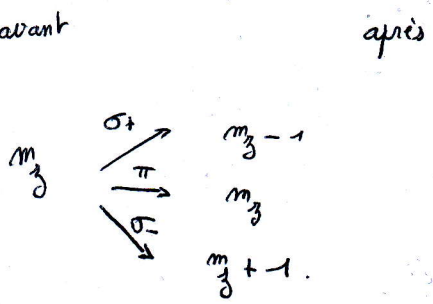 avant après
σ+ m_z - 1
m_z π m_z
σ- m_z + 1.